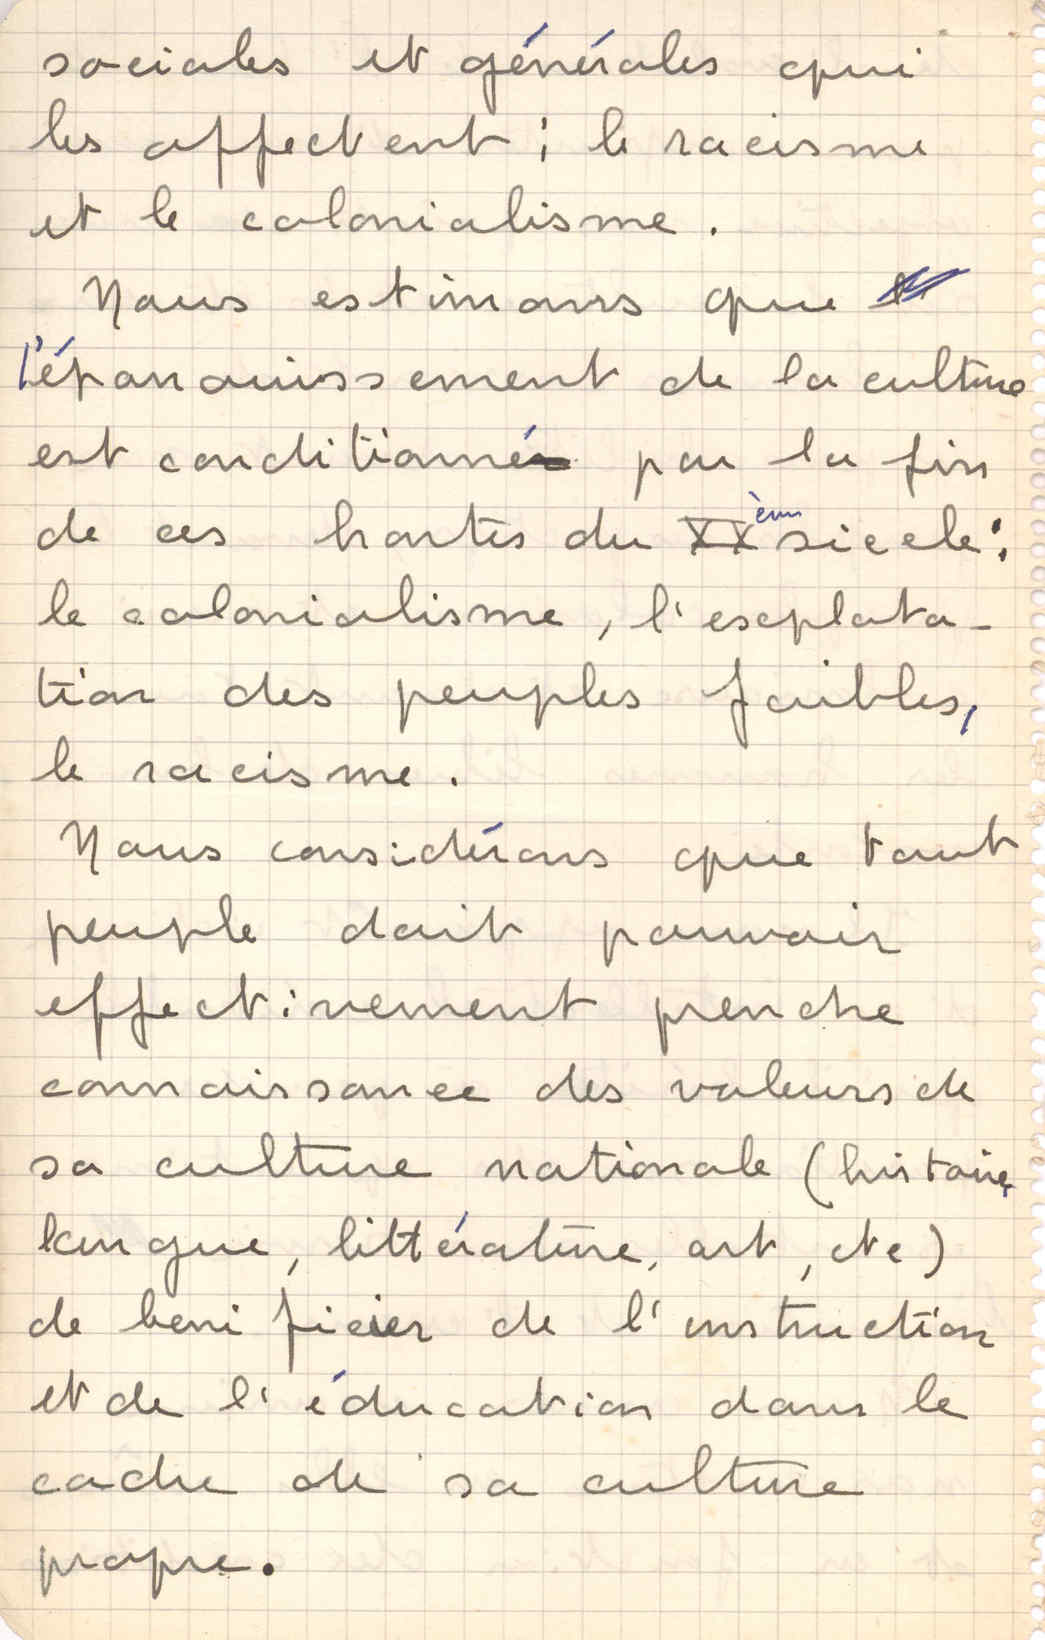 sociales et générales qui
les affectent : le racisme
et le colonialisme.
Nous estimons que
l'épanouissement de la culture
est conditionné par la fin
de ces hontes du XXème siecle :
le colonialisme, l'exploita-
tion des peuples faibles,
le racisme.
Nous considérons que tout
peuple doit pouvoir
effectivement prendre
connaissance des valeurs de
sa culture nationale (histoire,
langue, littérature, art, etc)
de beneficier de l'instruction
et de l'éducation dans le
cadre de sa culture
propre.